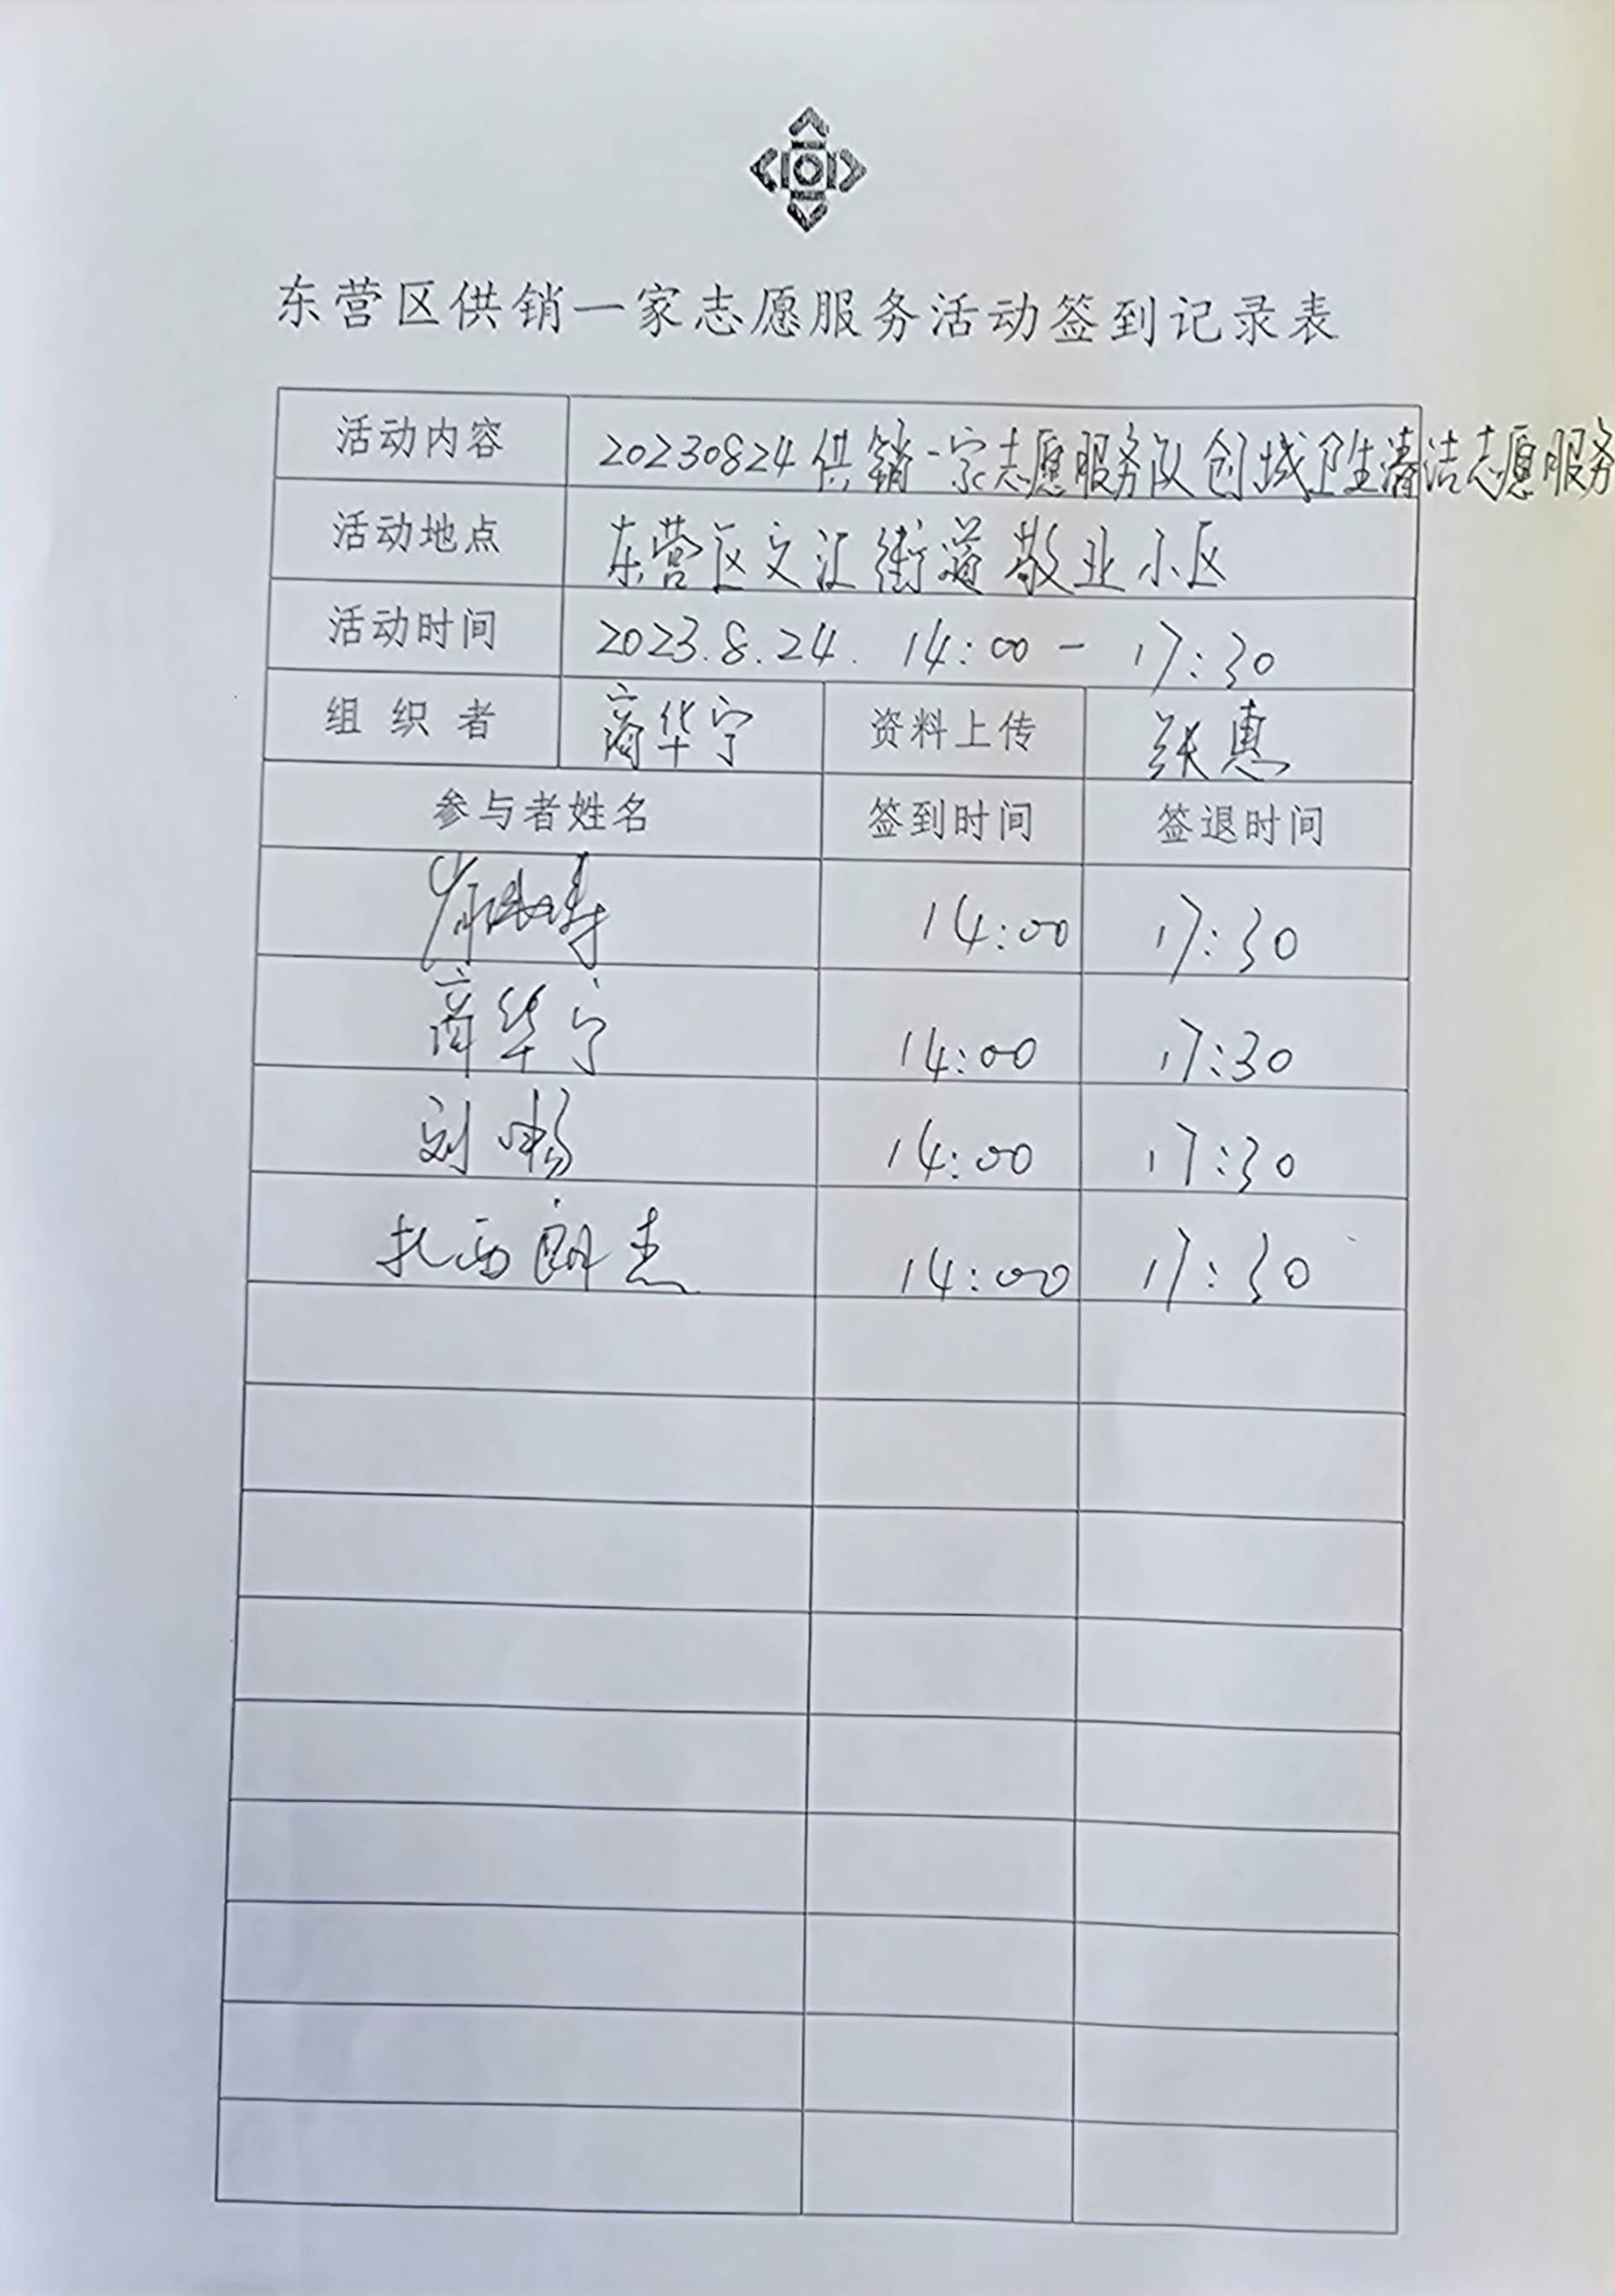 东营区供销一家志愿服务活动签到记录表
活动内容 20230824供销一家志愿服务队创城卫生清洁志愿服务
活动地点 东营区文汇街道敬业小区
活动时间 2023.8.24. 14:00-17:30
组织者 商华宁 资料上传 张惠
参与者姓名 签到时间 签退时间
14:00 17:30
商华宁 14:00 17:30
刘畅 14:00 17:30
扎西朗杰 14:00 17:30